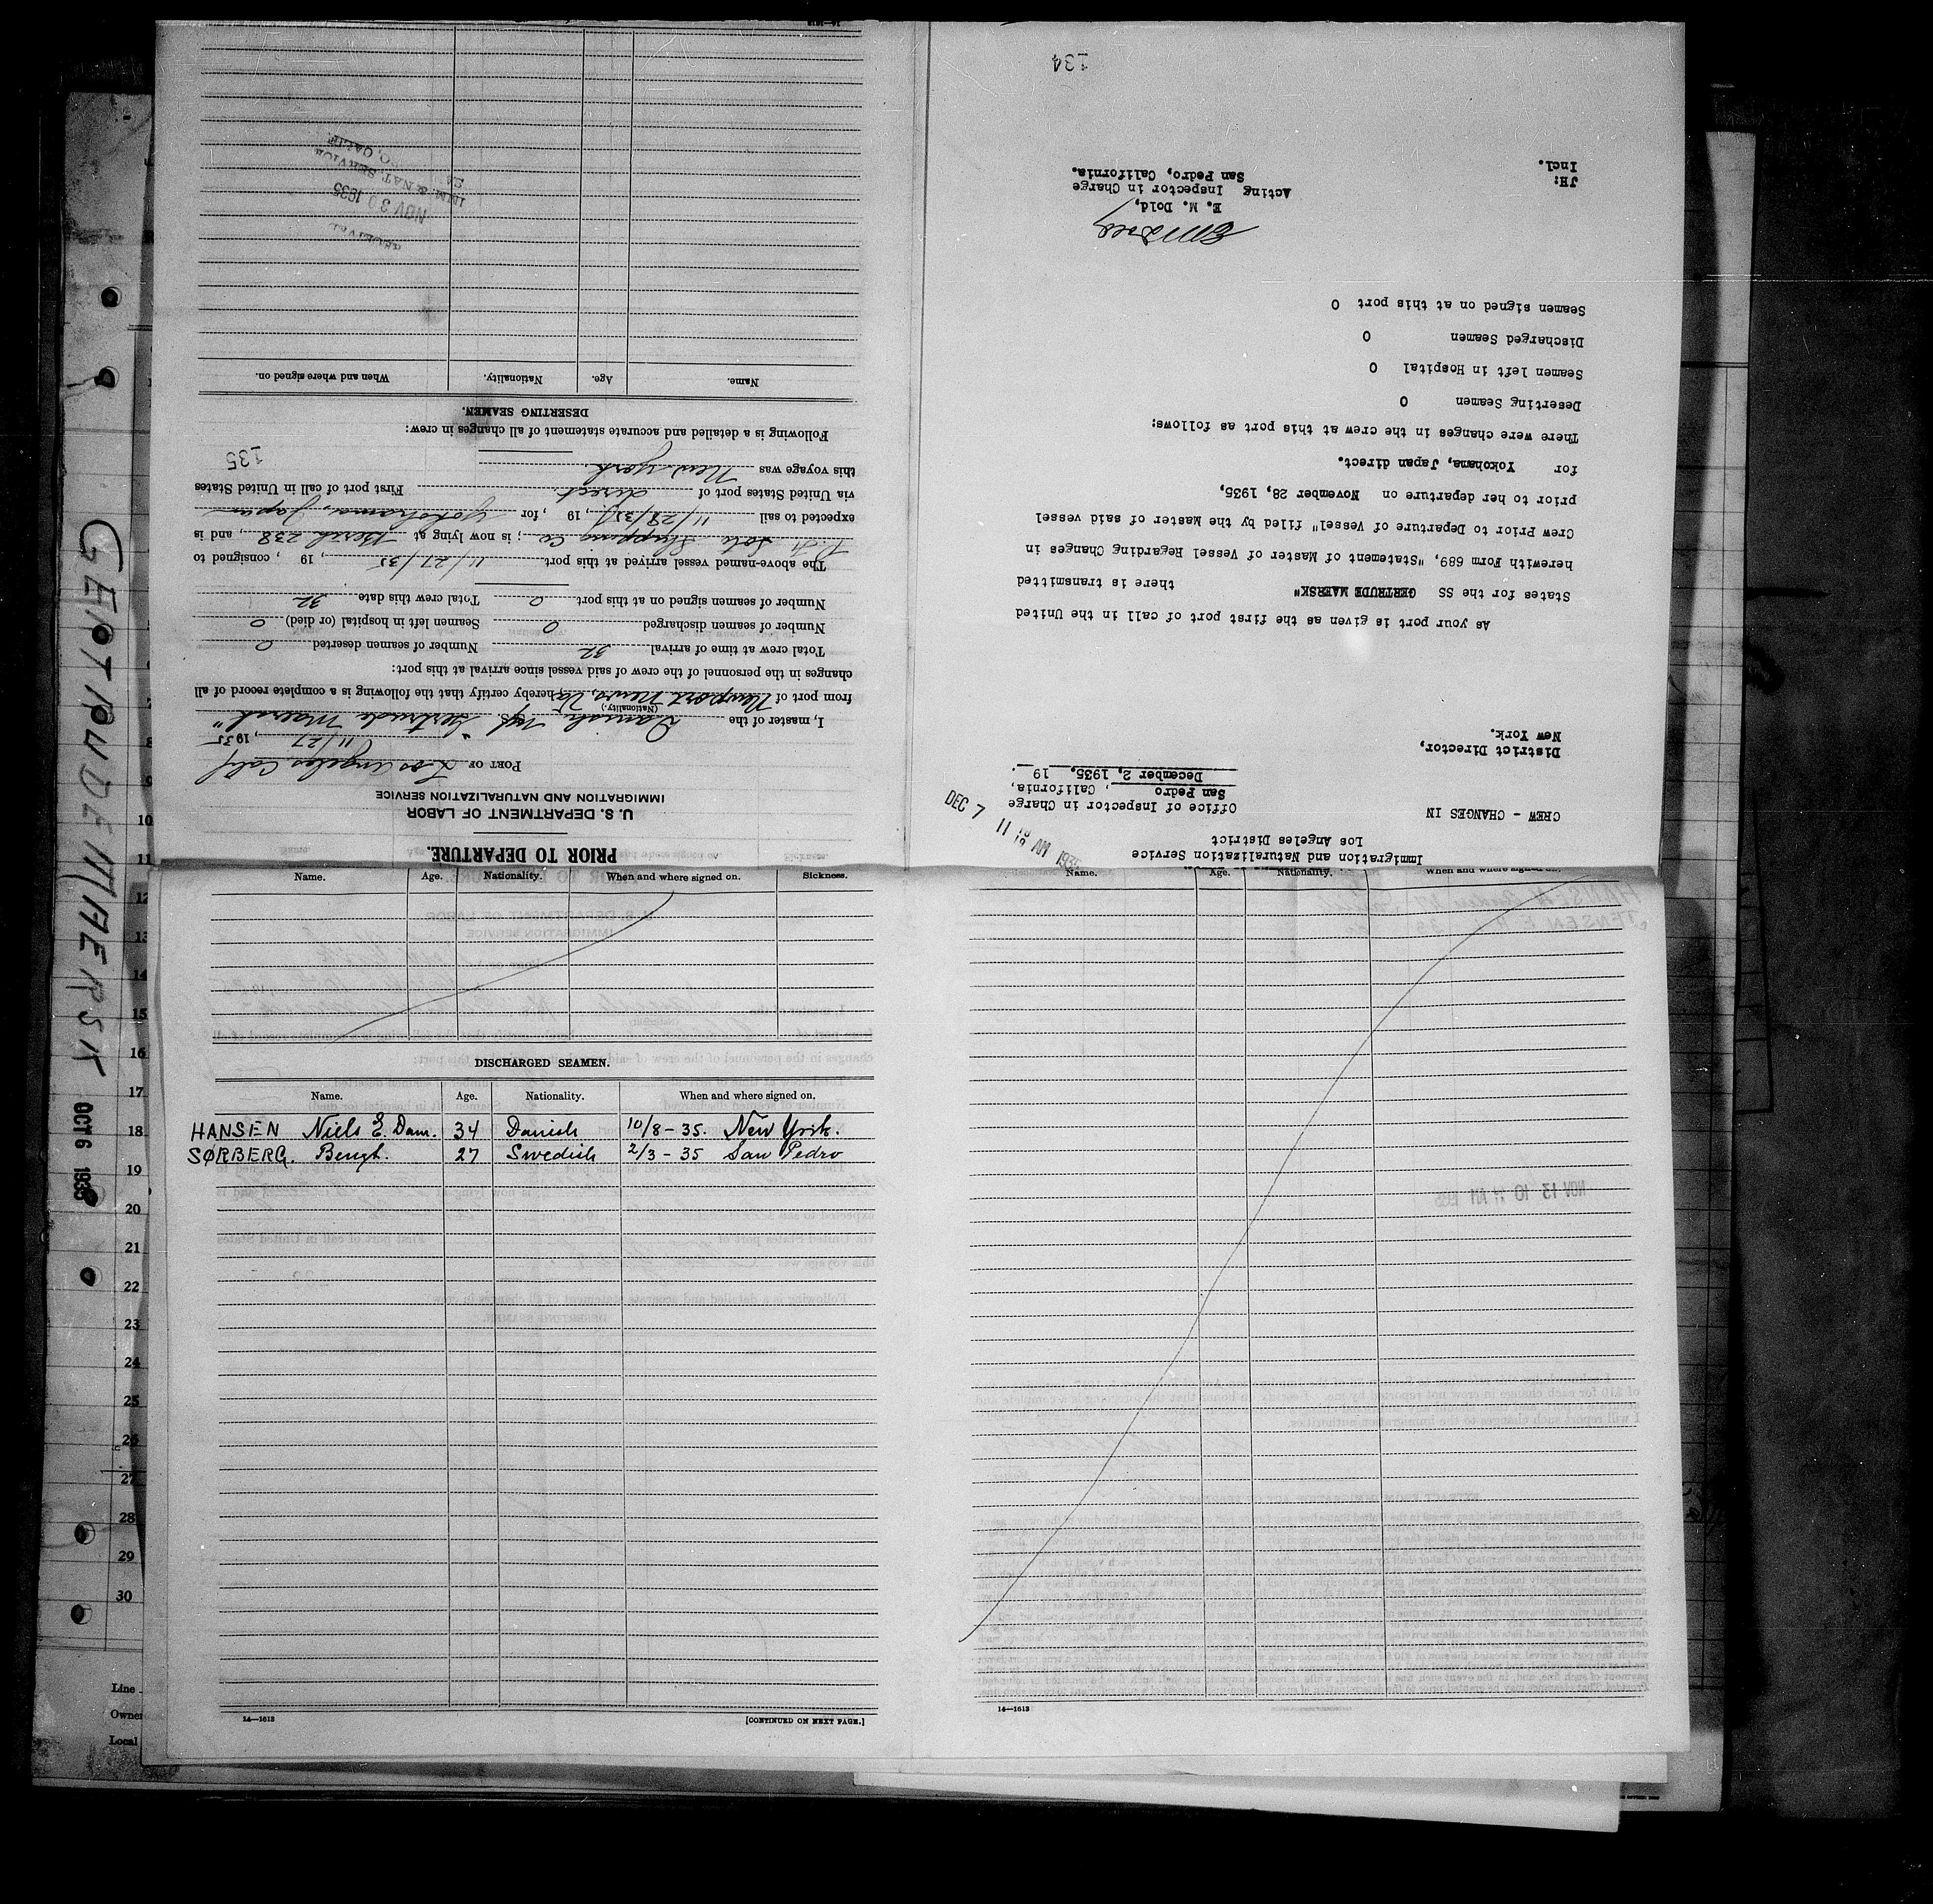 GERTRUDE MAERSK OCT 6 1935
134
Immigration and Naturalization Service
Los Angeles District
DEC 7 11 19 AM 1935
CREW - CHANGES IN
Office of Inspector in Charge
San Pedro, California,
December 2, 1935, 19 .
District Director,
New York.
As your port is given as the first port of call in the United
States for the SS GERTRUDE MAERSK" there is transmitted
herewith Form 689, "Statement of Master of Vessel Regarding Changes in
Crew Prior to Departure of Vessel" filed by the Master of said vessel
prior to her departure on November 28, 1935,
for Yokohama, Japan direct.
There were changes in the crew at this port as follows:
Deserting Seamen 0
Seamen left in Hospital 0
Discharged Seamen 0
Seamen signed on at this port 0
E. M. Dold,
Acting Inspector in Charge
San Pedro, California.
JH:
Incl.
PRIOR TO DEPARTURE.
U. S. DEPARTMENT OF LABOR
IMMIGRATION AND NATURALIZATION SERVICE
PORT OF Los Angeles Calif
11/27, 1935
I, master of the Danish M/S "Gertrude Maersk"
(Nationality.)
from port of Newport News, Va hereby certify that the following is a complete record of all
changes in the personnel of the crew of said vessel since arrival at this port:
Total crew at time of arrival 32 Number of seamen deserted 0
Number of seamen discharged 0 Seamen left in hospital (or died) 0
Number of seamen signed on at this port 0 Total crew this date 32
The above-named vessel arrived at this port 11/27/35, 19 , consigned to
Shipping Co; is now lying at Berth 238, and is
expected to sail 11/28/35, 19 , for Yokohama, Japan
via United States port of direct. First port of call in United States
this voyage was New York.
135
Following is a detailed and accurate statement of all changes in crew:
DESERTING SEAMEN.
Name. Age. Nationality. When and where signed on.
NOV 30 1935
IMM. & NAT. SERVICE
Name. Age. Nationality. When and where signed on. Sickness.
DISCHARGED SEAMEN.
Name. Age. Nationality. When and where signed on.
HANSEN Niels E. Dam. 34 Danish 10/8-35. New York.
SØRBERG. Bengt. 27 Swedish 2/3-35 San Pedro
14—1613
[CONTINUED ON NEXT PAGE.]
Name. Age. Nationality. When and where signed on.
14—1613
10
11
12
13
14
15
16
17
18
19
20
21
22
23
24
25
26
27
28
29
30
Line
Owner
Local